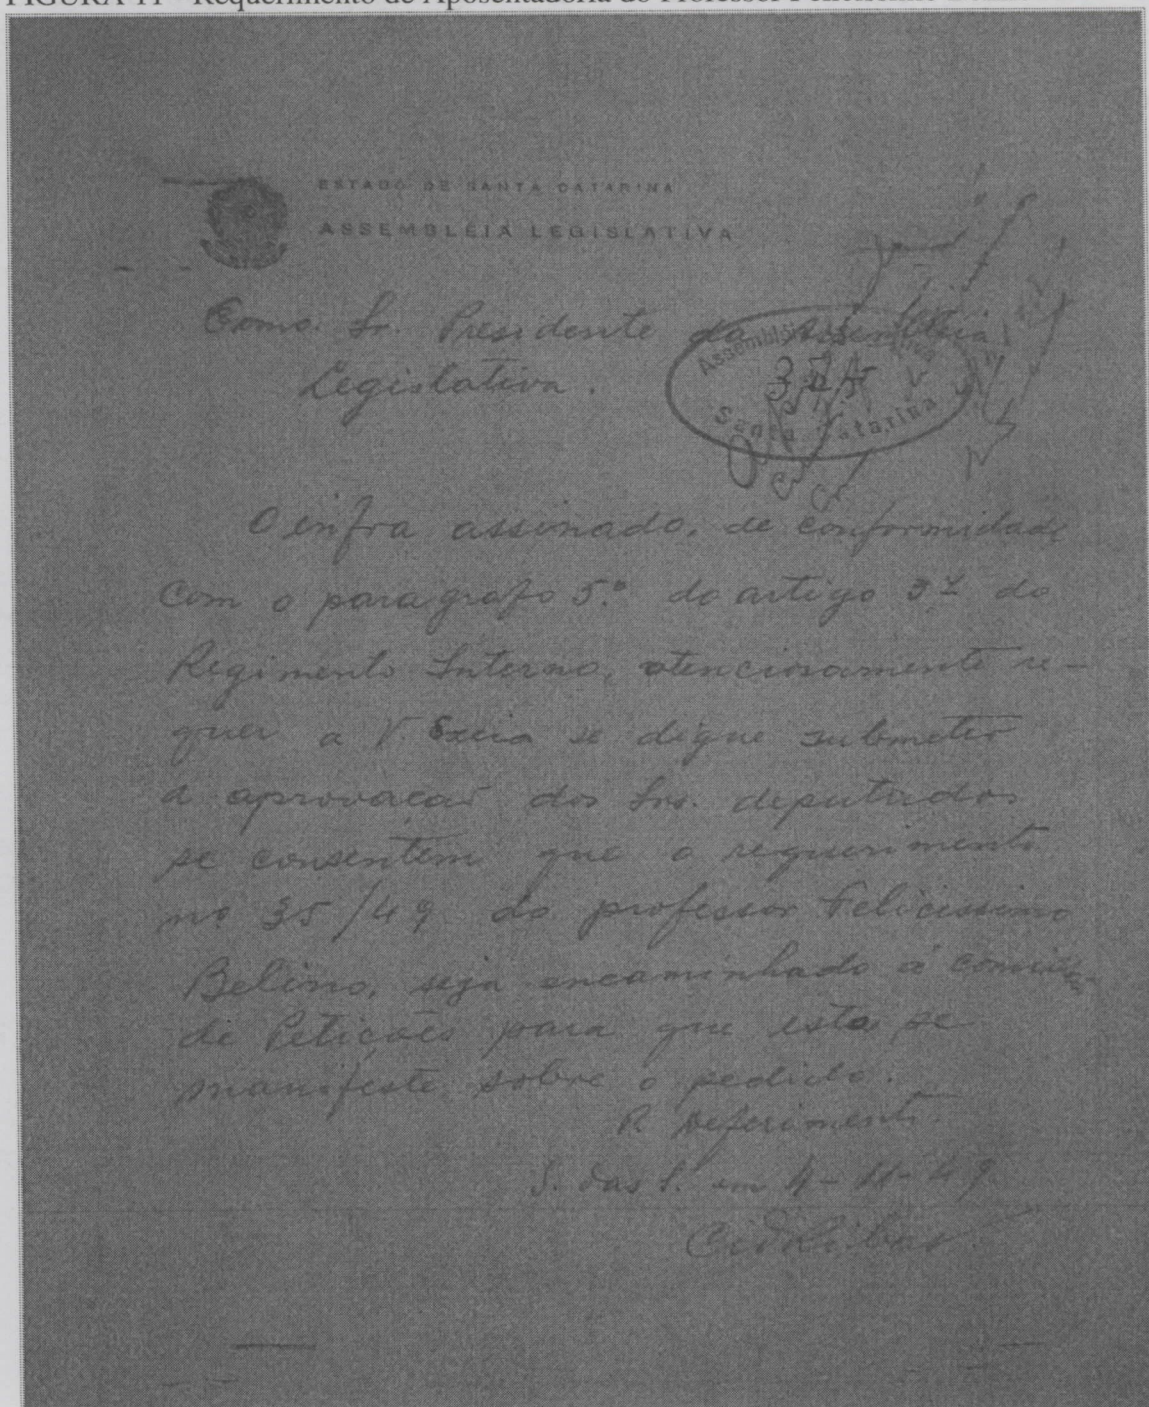 FIGURA 11 - Requerimento de Aposentadoria do Professor
ESTADO DE SANTA CATARINA
ASSEMBLÉIA LEGISLATIVA
Exmo. Sr. Presidente da Assembléia
Legislativa.
Assembléia
Santa Catarina
O infra assinado, de conformidade
com o paragrafo 5.º do artigo 3º do
Regimento Interno, atenciosamente re-
quer a V Excia se digne submeter
a aprovação dos Srs. deputados
se consentem que o requerimento
nº 35/49 do professor Felicissimo
Belino, seja encaminhado á comissão
de Petições para que esta se
manifeste sobre o pedido.
P. Deferimento.
S. das S. em 4-11-49
Cid Ribas